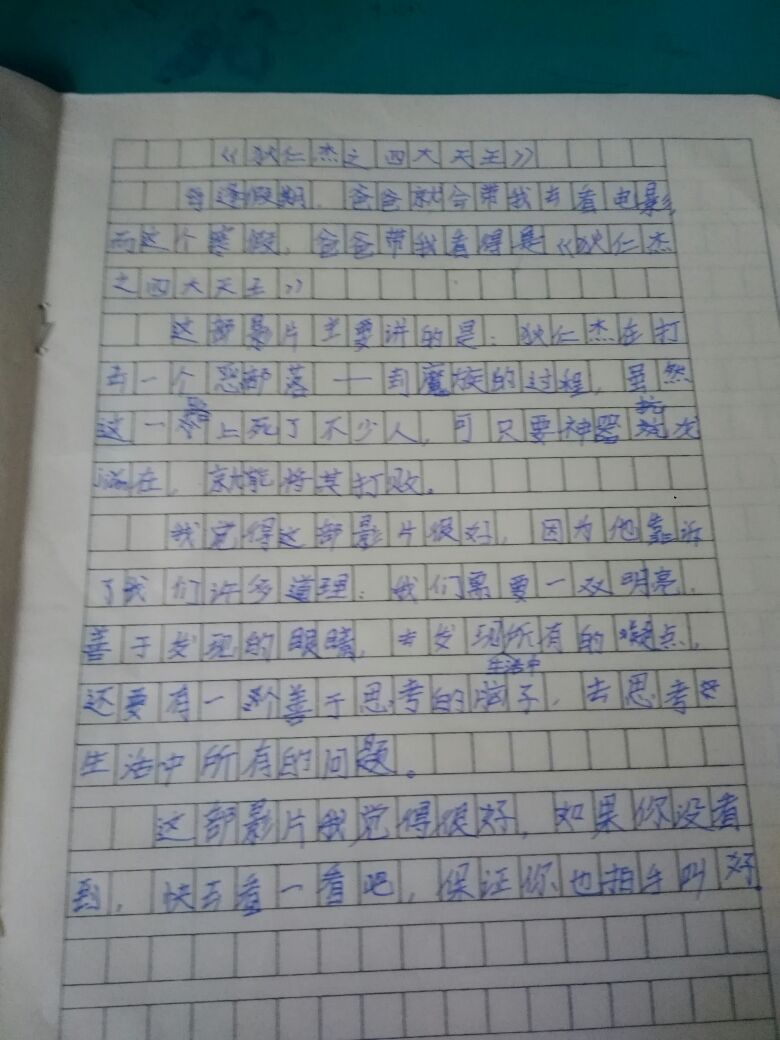 《狄仁杰之四大天王》
每逢假期，爸爸就会带我去看电影，
而这个寒假，爸爸带我看得是《狄仁杰
之四大天王》
这部影片主要讲的是：狄仁杰在打
击一个恶部落——封魔族的过程，虽然
这一路上死了不少人，可只要神器
在，就能将其打败。
我觉得这部影片很好，因为他告诉
了我们许多道理：我们需要一双明亮，
善于发现的眼睛，去发现生活中所有的疑点，
还要有一个善于思考的脑子，去思考
生活中所有的问题。
这部影片我觉得很好，如果你没看
到，快去看一看吧，保证你也拍手叫好。